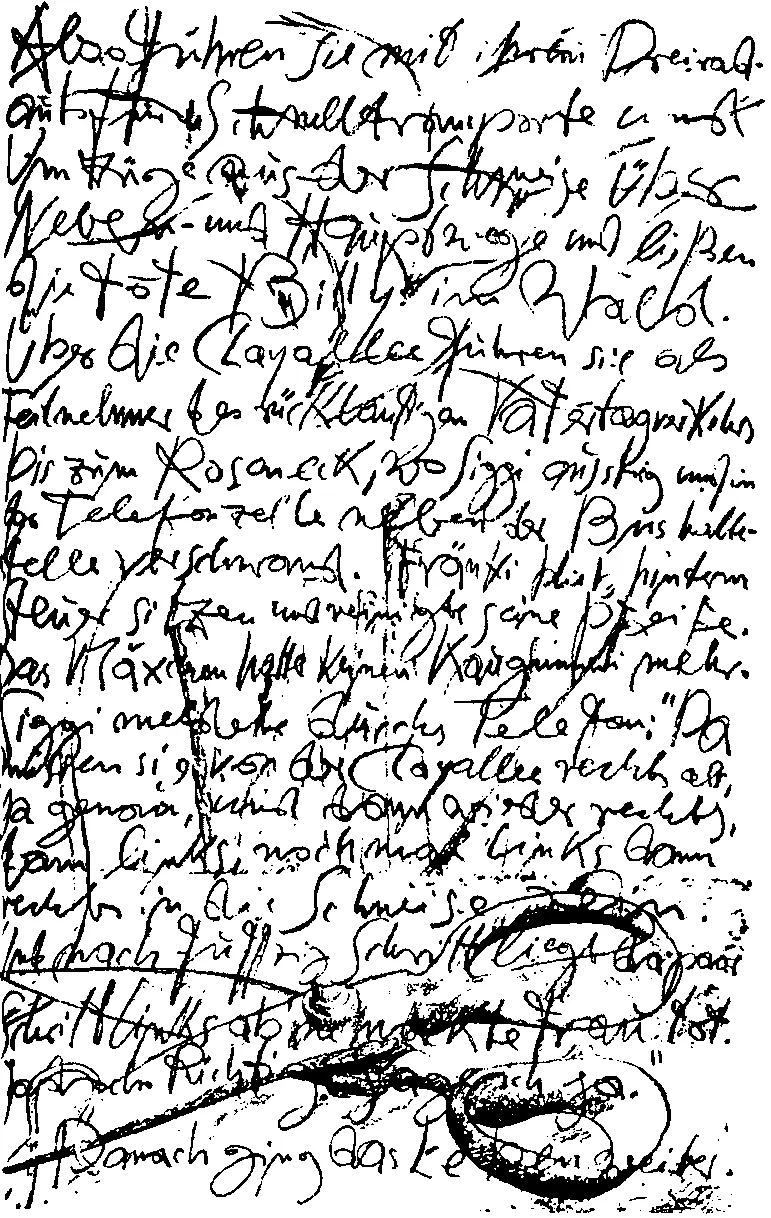 Also fuhren sie mit ihrem Dreirad-
auto für Schnelltransporte und
Umzüge aus der Schneise über
Neben- und Hauptwege und ließen
die tote Billy im Wald.
Über die Clayallee fuhren sie als
Teilnehmer des rückläufigen Vatertagverkehrs
bis zum Roseneck, wo Siggi ausstieg und in
der Telefonzelle neben der Bushalte-
stelle verschwand. Fränki blieb hinterm
Steuer sitzen und reinigte seine Pfeife.
Das Mäxchen hatte keinen Kaugummi mehr.
Siggi meldete durchs Telefon: "Da
müssen sie von der Clayallee rechts ab,
ja genau, und dann wieder rechts,
dann links, nochmal links dann
rechts in die Schneise rein.
Und nach fuffzig Schritt liegt da paar
Schritt links ab ne nackte Frau. Tot.
Richtig. sag ich ja."
Danach ging das Leben weiter.